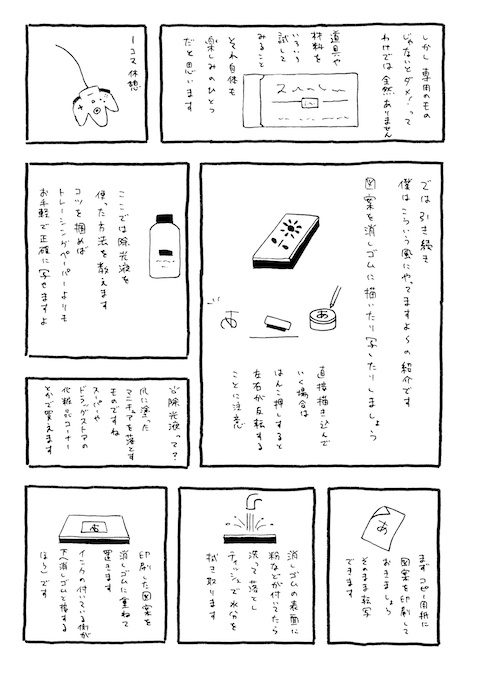 しかし 専用のもの
じゃないとダメ!って
わけでは全然ありません
道具や
材料を
いろいろ
試して
みること
それ自体も
楽しみのひとつ
だと思います
1コマ休憩
では引き続き
僕はこういう風にやってますよ〜の紹介です
図案を消しゴムに描いたり写したりしましょう
あ
あ
直接描き込んで
いく場合は
はんこ押しすると
左右が反転する
ことに注意
ここでは除光液を
使った方法を教えます
コツを掴めば
トレーシングペーパーよりも
お手軽で正確に写せますよ
※除光液って?
爪に塗った
マニキュアを落とす
ものですね
スーパーや
ドラッグストアの
化粧品コーナー
とかで買えます
まずコピー用紙に
図案を印刷して
おきましょう
そのまま転写
できます
あ
消しゴムの表面に
粉などが付いてたら
洗って落とし
ティッシュで水分を
拭き取ります
印刷した図案を
消しゴムに重ねて
置きます
インクの付いている側が
下(消しゴムと接する
ほう)です
あ